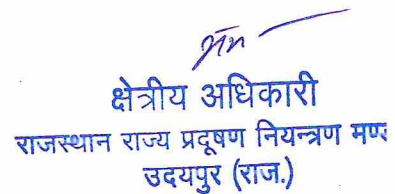 क्षेत्रीय अधिकारी
राजस्थान राज्य प्रदूषण नियन्त्रण मण्ड
उदयपुर (राज.)